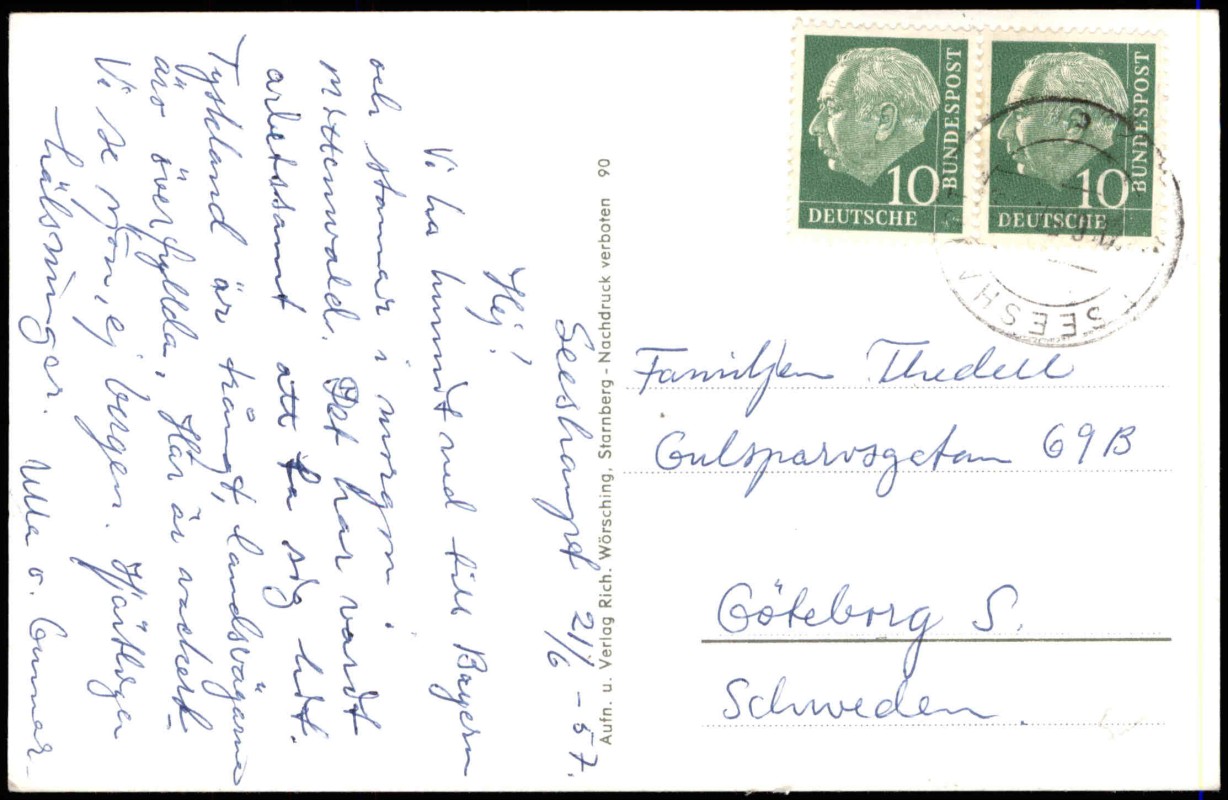 Seeshaupt 21/6 – 57.
Hej!
Vi ha hunnit ned till Bayern
och stannar i morgon i
Mittenwald. Det har varit
arbetssamt att ta sig hit.
Tyskland är trångt, landsvägarna
äro överfyllda. Här är vackert.
Vi se sjön, ej bergen. Hjärtliga
hälsningar. Ulla o. Gunnar
Aufn. u. Verlag Rich. Wörsching, Starnberg - Nachdruck verboten 90
10
DEUTSCHE
BUNDESPOST
10
DEUTSCHE
BUNDESPOST
SEESH
Familjen Thedell
Gulsparvsgatan 69B
Göteborg S.
Schweden.